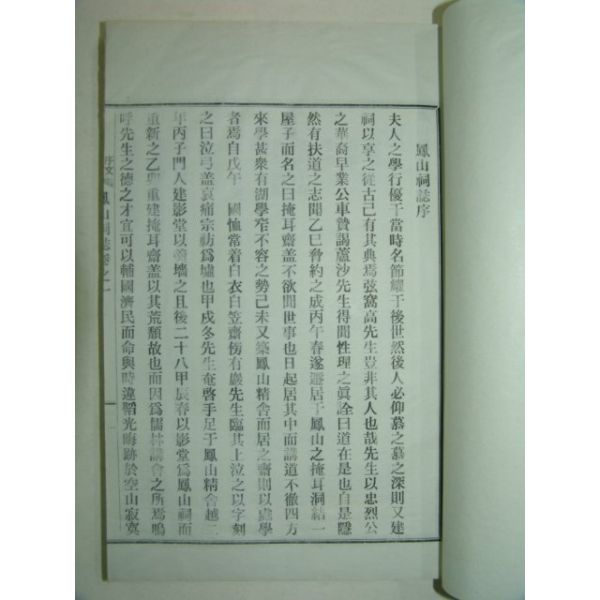 鳳山祠誌序
夫人之學行優于當時名節耀于後世然後人必仰慕之慕之深則又建
祠以享之從古已有其典焉弦窩高先生豈非其人也哉先生以忠烈公
之華裔早業公車贄謁蘆沙先生得聞性理之眞詮曰道在是也自是隱
然有扶道之志聞乙巳脅約之成丙午春遂遯居于鳳山之掩耳洞結一
屋子而名之曰掩耳齋盖不欲聞世事也日起居其中而講道不徹四方
來學甚衆有湖學窄不容之勢己未又築鳳山精舍而居之齋則以處學
者焉自戊午 國恤常着白衣白笠齋傍有巖先生臨其上泣之以字刻
之曰泣弓盖哀痛宗祊爲墟也甲戌冬先生奄啓手足于鳳山精舍越三
年丙子門人建影堂以善墻之且後二十八甲辰春以影堂爲鳳山祠而
重新之乙與重建掩耳齋盖以其荒頹故也而因爲儒林講會之所焉嗚
呼先生之德之才宜可以輔國濟民而命與時違韜光晦跡於空山寂寞
序文 鳳山祠誌卷之一